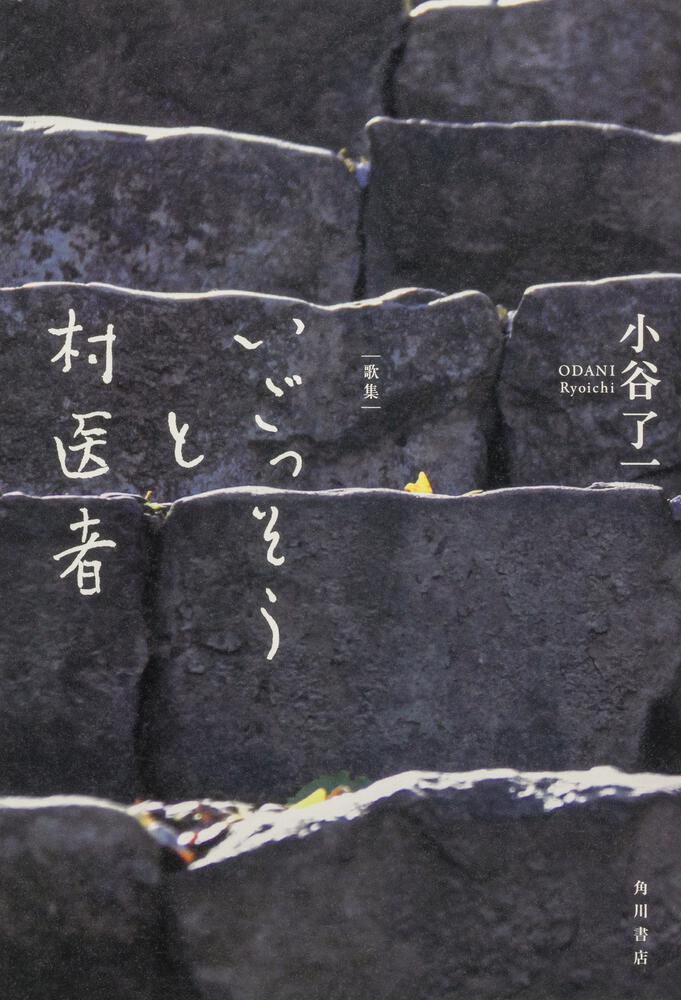 小谷了一
ODANI
Ryoichi
歌集
いごっそう
と
村医者
角川書店